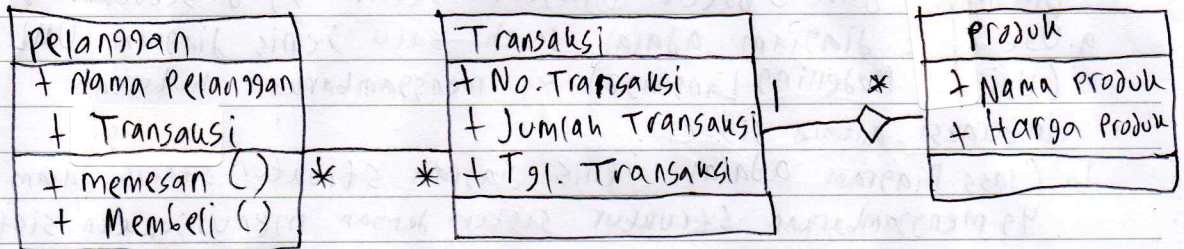 Pelanggan
+ Nama Pelanggan
+ Transaksi
+ memesan ()
+ Membeli ()
*
*
Transaksi
+ No. Transaksi
+ Jumlah Transaksi
+ Tgl. Transaksi
1
*
Produk
+ Nama Produk
+ Harga Produk